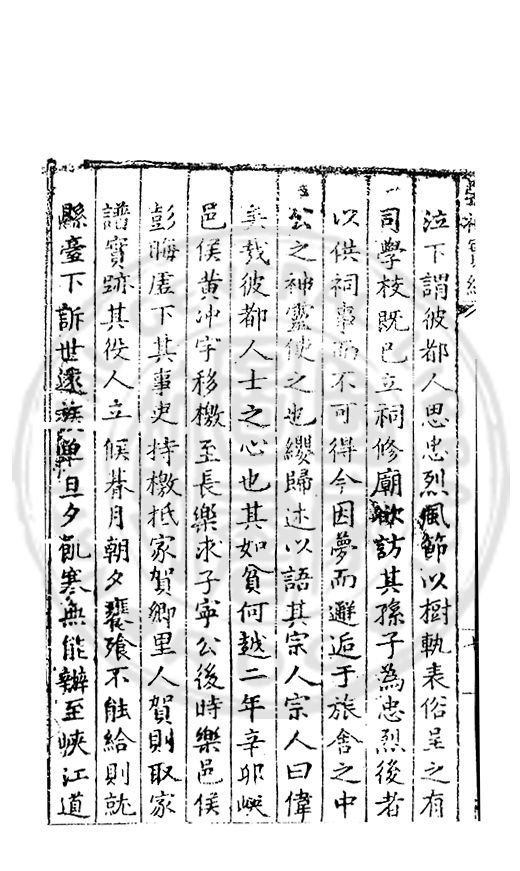 泣下謂彼都人思忠烈風節以樹軌表俗呈之有
司學校既已立祠修廟欲訪其孫子為忠烈後者
以供祠事而不可得今因夢而邂逅于旅舍之中
公之神靈使之也纓歸述以語其宗人宗人曰偉
矣哉彼都人士之心也其如貧何越二年辛卯峽
邑侯黃冲宇移檄至長樂求子寧公後時樂邑侯
彭晦㢓下其事吏持檄抵家賀鄉里人賀則取家
譜實跡其役人立候朞月朝夕饔飧不能給則就
縣臺下訴世遠族單旦夕飢寒無能辦至峽江道